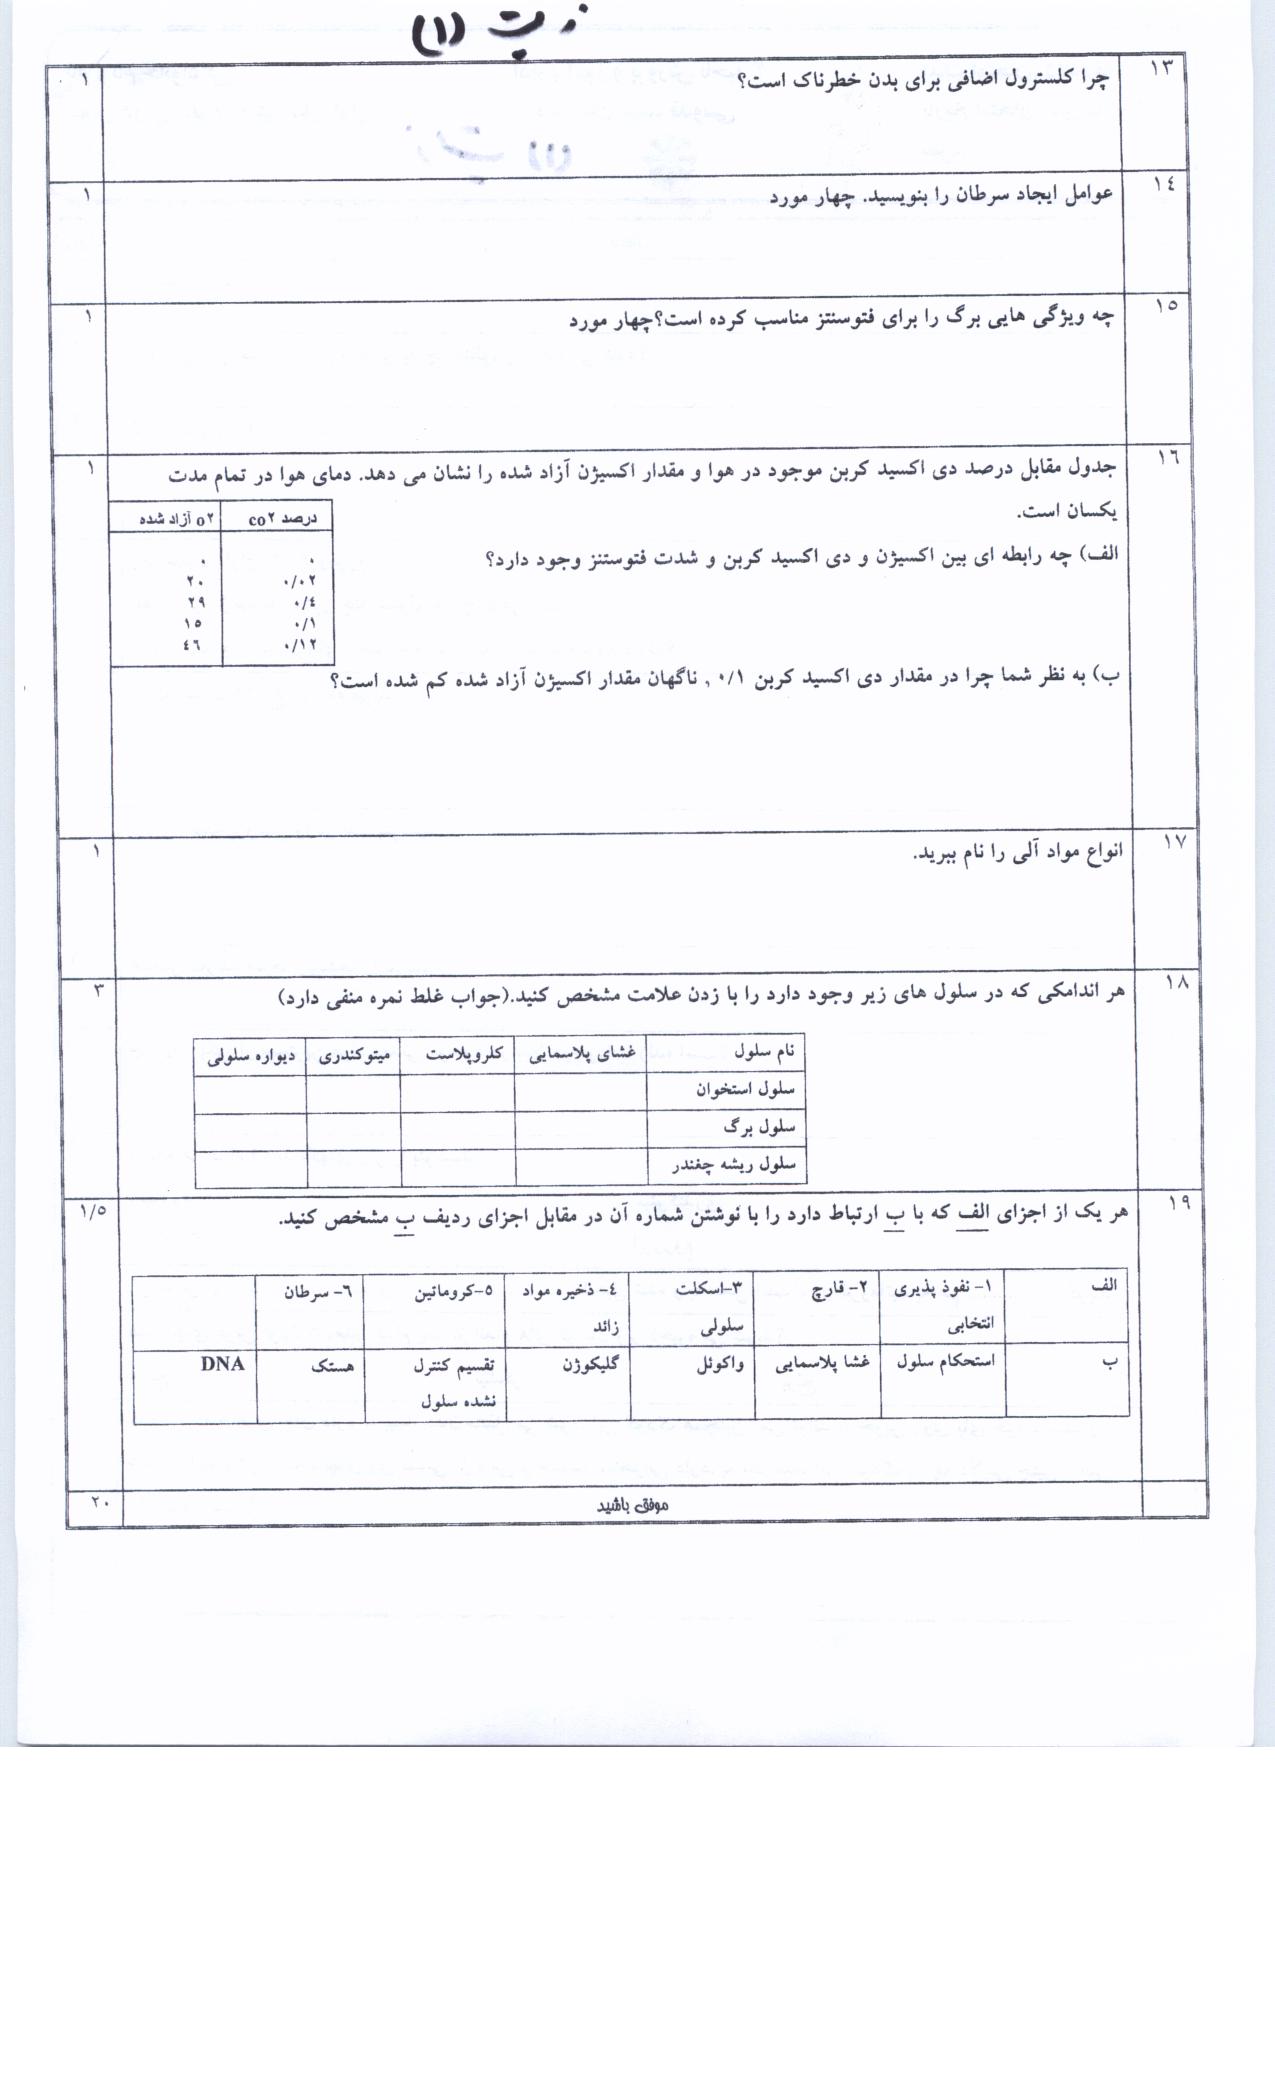 زیست (۱)
۱۳ چرا کلسترول اضافی برای بدن خطرناک است؟ ۱
۱٤ عوامل ایجاد سرطان را بنویسید. چهار مورد ۱
۱۵ چه ویژگی هایی برگ را برای فتوسنتز مناسب کرده است؟چهار مورد ۱
۱٦ جدول مقابل درصد دی اکسید کربن موجود در هوا و مقدار اکسیژن آزاد شده را نشان می دهد. دمای هوا در تمام مدت ۱
یکسان است.
درصد co۲ o۲ آزاد شده
۰ ۰
۰/۰۲ ۲۰
۰/٤ ۲۹
۰/۱ ۱۵
۰/۱۲ ٤٦
الف) چه رابطه ای بین اکسیژن و دی اکسید کربن و شدت فتوستنز وجود دارد؟
ب) به نظر شما چرا در مقدار دی اکسید کربن ۰/۱ , ناگهان مقدار اکسیژن آزاد شده کم شده است؟
۱۷ انواع مواد آلی را نام ببرید. ۱
۱۸ هر اندامکی که در سلول های زیر وجود دارد را با زدن علامت مشخص کنید.(جواب غلط نمره منفی دارد) ۳
نام سلول غشای پلاسمایی کلروپلاست میتوکندری دیواره سلولی
سلول استخوان
سلول برگ
سلول ریشه چغندر
۱۹ هر یک از اجزای الف که با ب ارتباط دارد را با نوشتن شماره آن در مقابل اجزای ردیف ب مشخص کنید. ۱/۵
الف ۱- نفوذ پذیری انتخابی ۲- قارچ ۳-اسکلت سلولی ٤- ذخیره مواد زائد ۵-کروماتین ٦- سرطان
ب استحکام سلول غشا پلاسمایی واکوئل گلیکوژن تقسیم کنترل نشده سلول هستک DNA
موفق باشید ۲۰